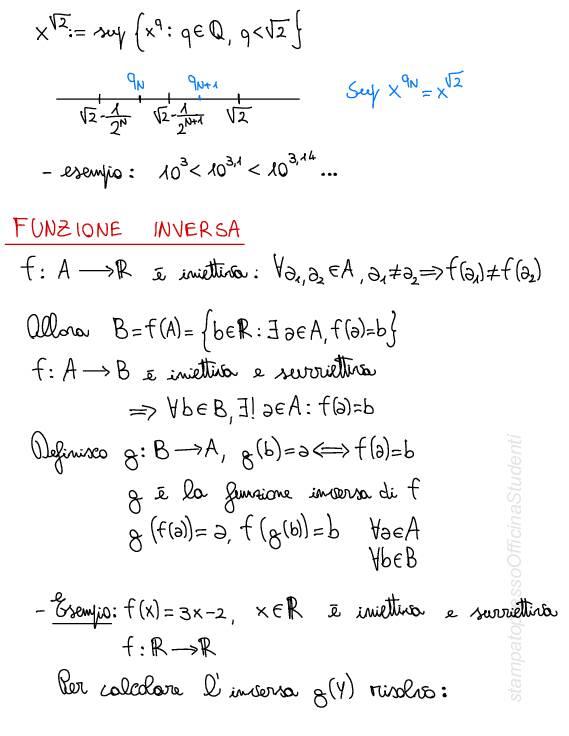 x^√2 := sup {x^q : q ∈ Q, q < √2}
q_N q_{N+1}
Sup x^{q_N} = x^√2
√2 - 1/2^N √2 - 1/2^{N+1} √2
- esempio: 10^3 < 10^{3,1} < 10^{3,14} ...
FUNZIONE INVERSA
f: A → R è iniettiva: ∀a₁,a₂ ∈ A, a₁ ≠ a₂ ⇒ f(a₁) ≠ f(a₂)
Allora B = f(A) = {b ∈ R : ∃ a ∈ A, f(a) = b}
f: A → B è iniettiva e surriettiva
⇒ ∀b ∈ B, ∃! a ∈ A : f(a) = b
Definisco g: B → A, g(b) = a ⟺ f(a) = b
g è la funzione inversa di f
g(f(a)) = a, f(g(b)) = b ∀a ∈ A
∀b ∈ B
- Esempio: f(x) = 3x - 2, x ∈ R è iniettiva e surriettiva
f: R → R
Per calcolare l'inversa g(Y) risolvo:
stampatopressoOfficinaStudenti